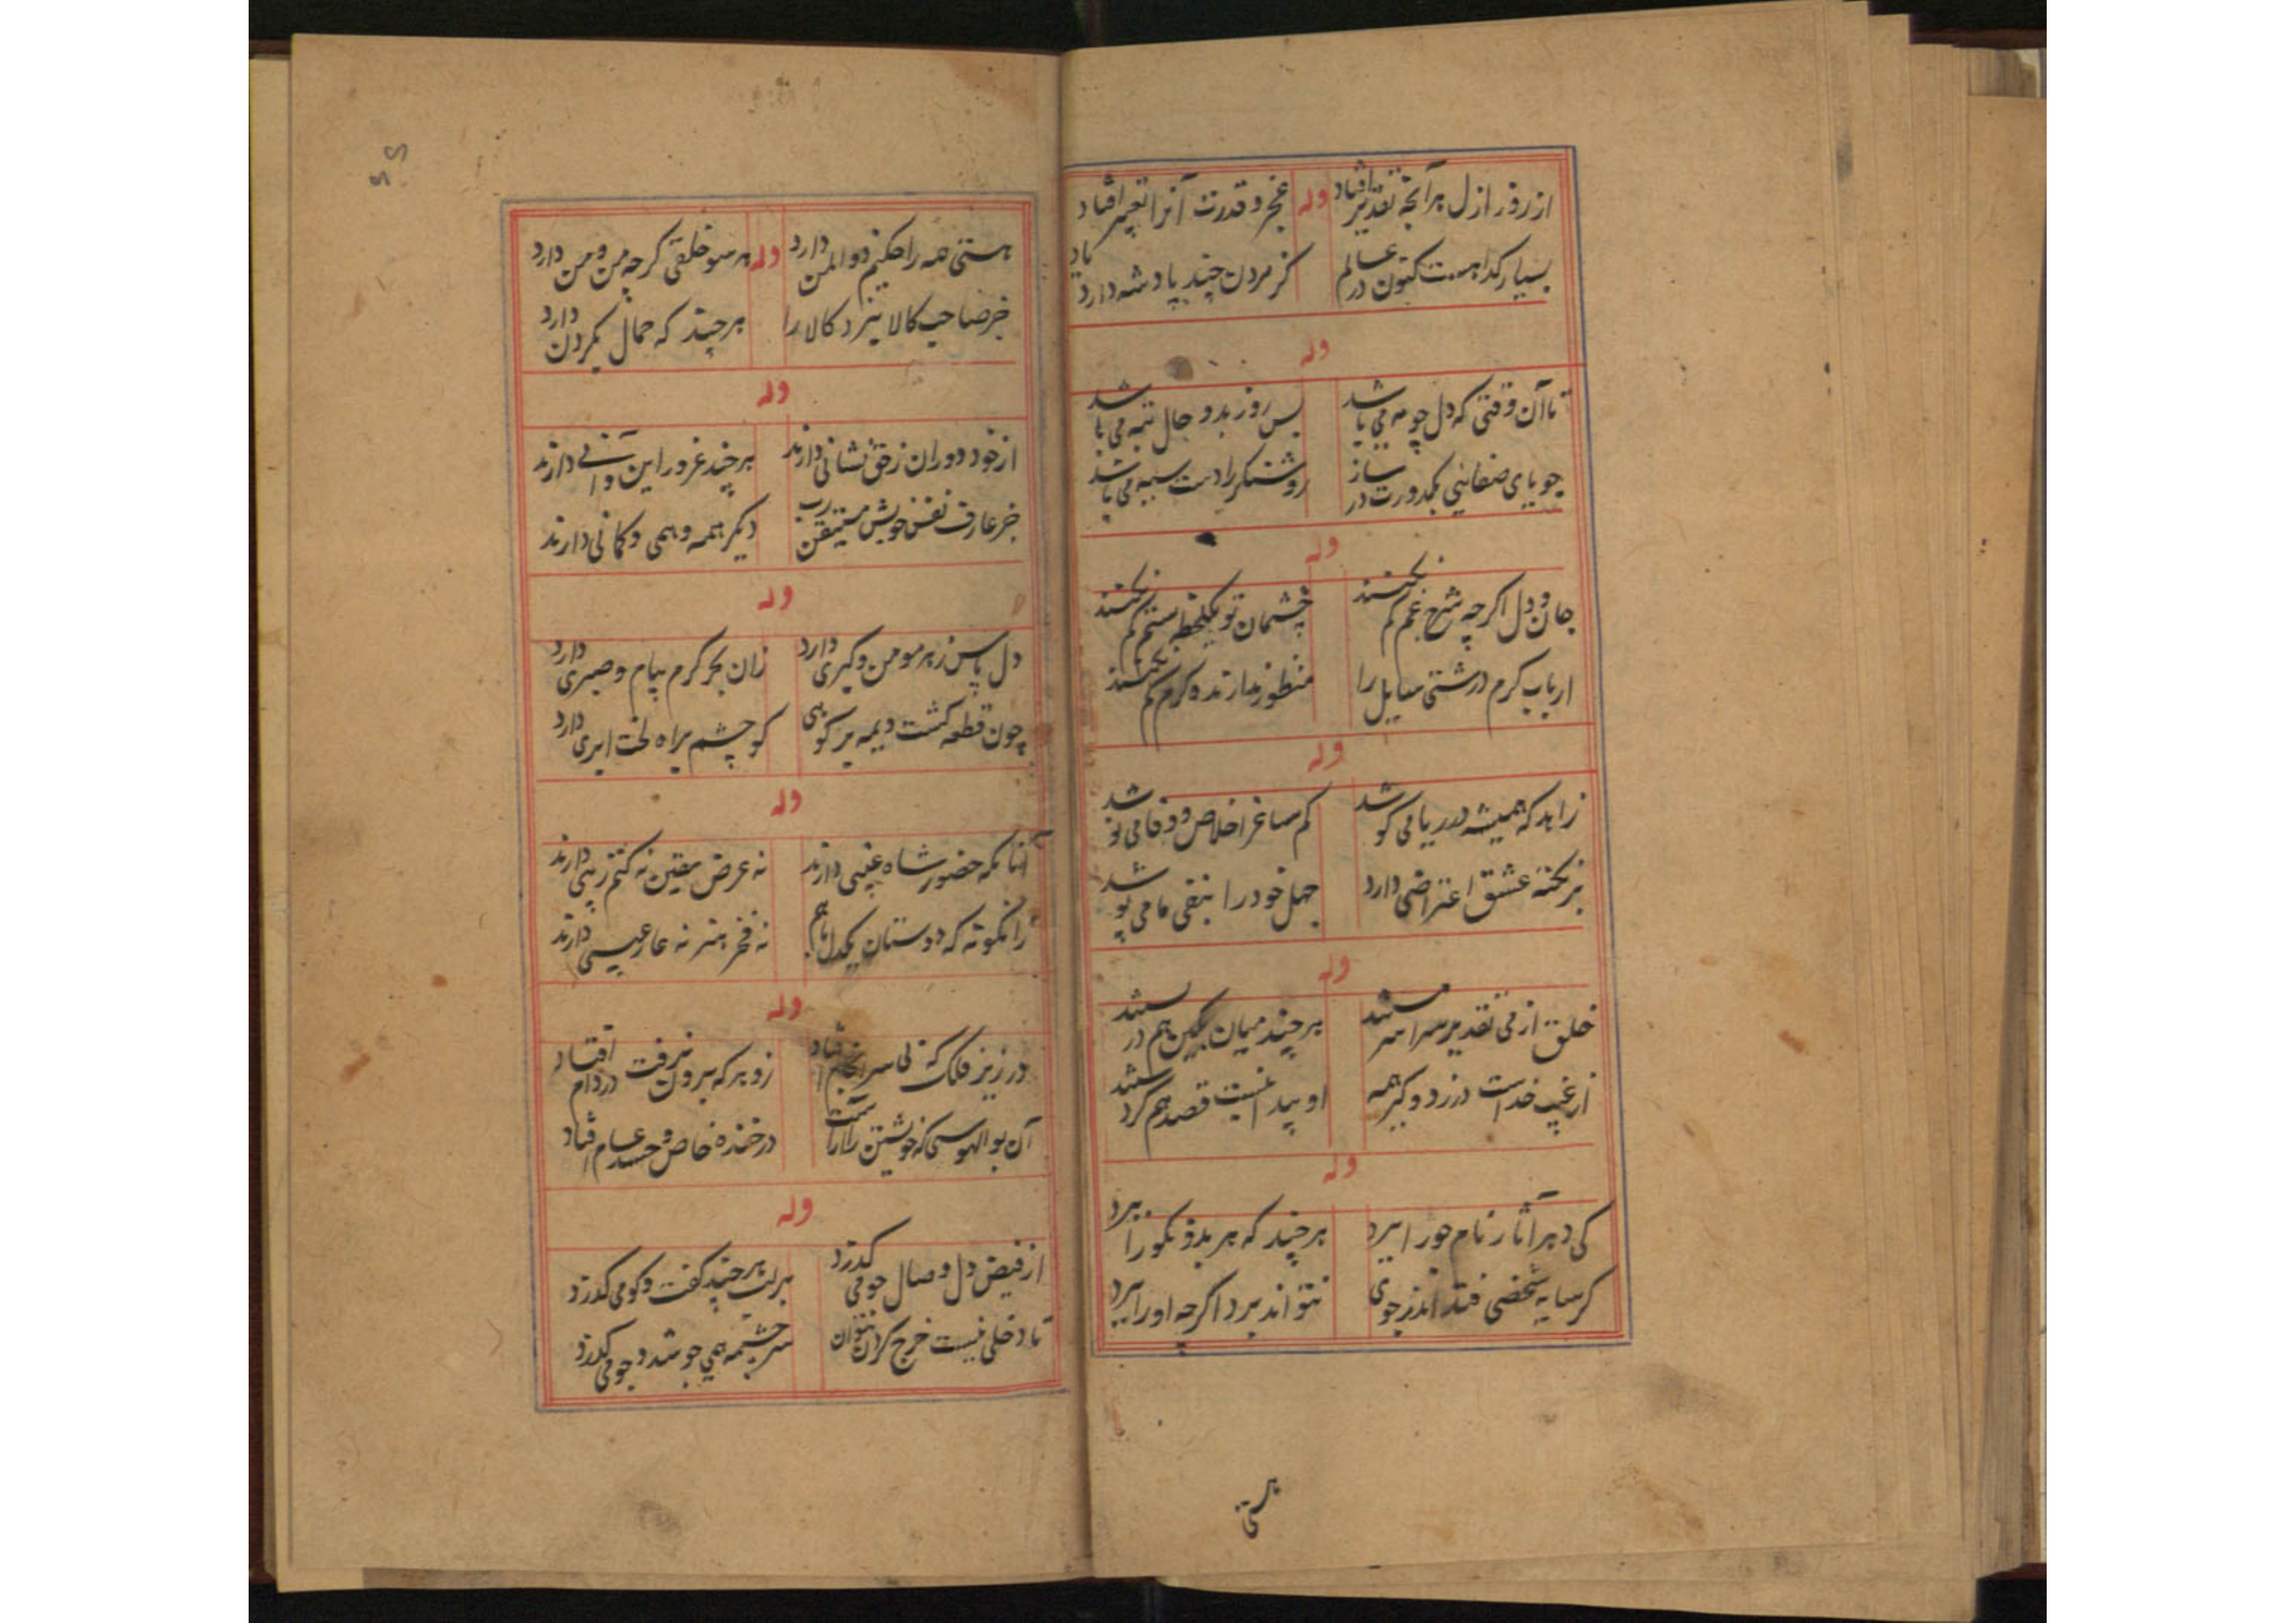 از روز ازل هر آنچه تقدیر افتاد وله عجز و قدرت آنرا تغییر افتاد
بسیار گدا هست کنون در عالم کز مردن چند پادشه دارد یاد
وله
تا آن وقتی که دل چو مه می باشد پس روز بد و حال تبه می باشد
جویای صفایی بکدورت در ساز روشنگر را دست سیه می باشد
وله
جان و دل اگرچه شرح غم کم نکنند چشمان تو یکلحظه ستم کم نکنند
ارباب کرم درشتی سایل را منظور ندارند و کرم کم نکنند
وله
زاهد که همیشه در ریا می کوشد کم ساغر اخلاص و وفا می نوشد
بر نکته عشق اعتراضی دارد جهل خود را بنفی ما می پوشد
وله
خلق از فی تقدیر سراسر مستند هر چند میان بکین هم در بستند
از غیب خداست دزد و کبر همه او پیدا نیست قصد هم کردستند
وله
کی دهر آثار نام جو را ببرد هر چند که هر بد و نکو را ببرد
گر سایه شخصی فتد اندر جوی نتواند برد اگرچه او را ببرد
هستی
هستی همه را حکیم ذوالمن دارد وله هر سو خلقی گرچه من و من دارد
جز صاحب کالا نبرد کالا را هر چند که حمال بگردن دارد
وله
از خود دوران ز حق نشانی دارند هر چند غرور این و آنی دارند
جز عارف نفس خویش مستیقن رب دیگر همه وهمی و گمانی دارند
وله
دل پاس ز هر مومن و گبری دارد زان بحر کرم پیام و صبری دارد
چون قطعه کشت دیمه بر کوهی کو چشم براه لخت ابری دارد
وله
آنانکه حضور شاه غیبی دارند نه عرض یقین نه کتم ریبی دارند
زانگونه که دوستان یکدل باهم نه فخر هنر نه عار عیبی دارند
وله
در زیر فلک که بی سرانجام افتاد زو هر که برون نرفت در دام افتاد
آن بوالهوسی که خویشتن را آراست در خنده خاص و حسد عام افتاد
وله
از فیض دل وصال جو می گذرد بر لب هر چند گفت و گو می گذرد
تا دخلی نیست خرج کردن نتوان سرچشمه همی جوشد و جو می گذرد